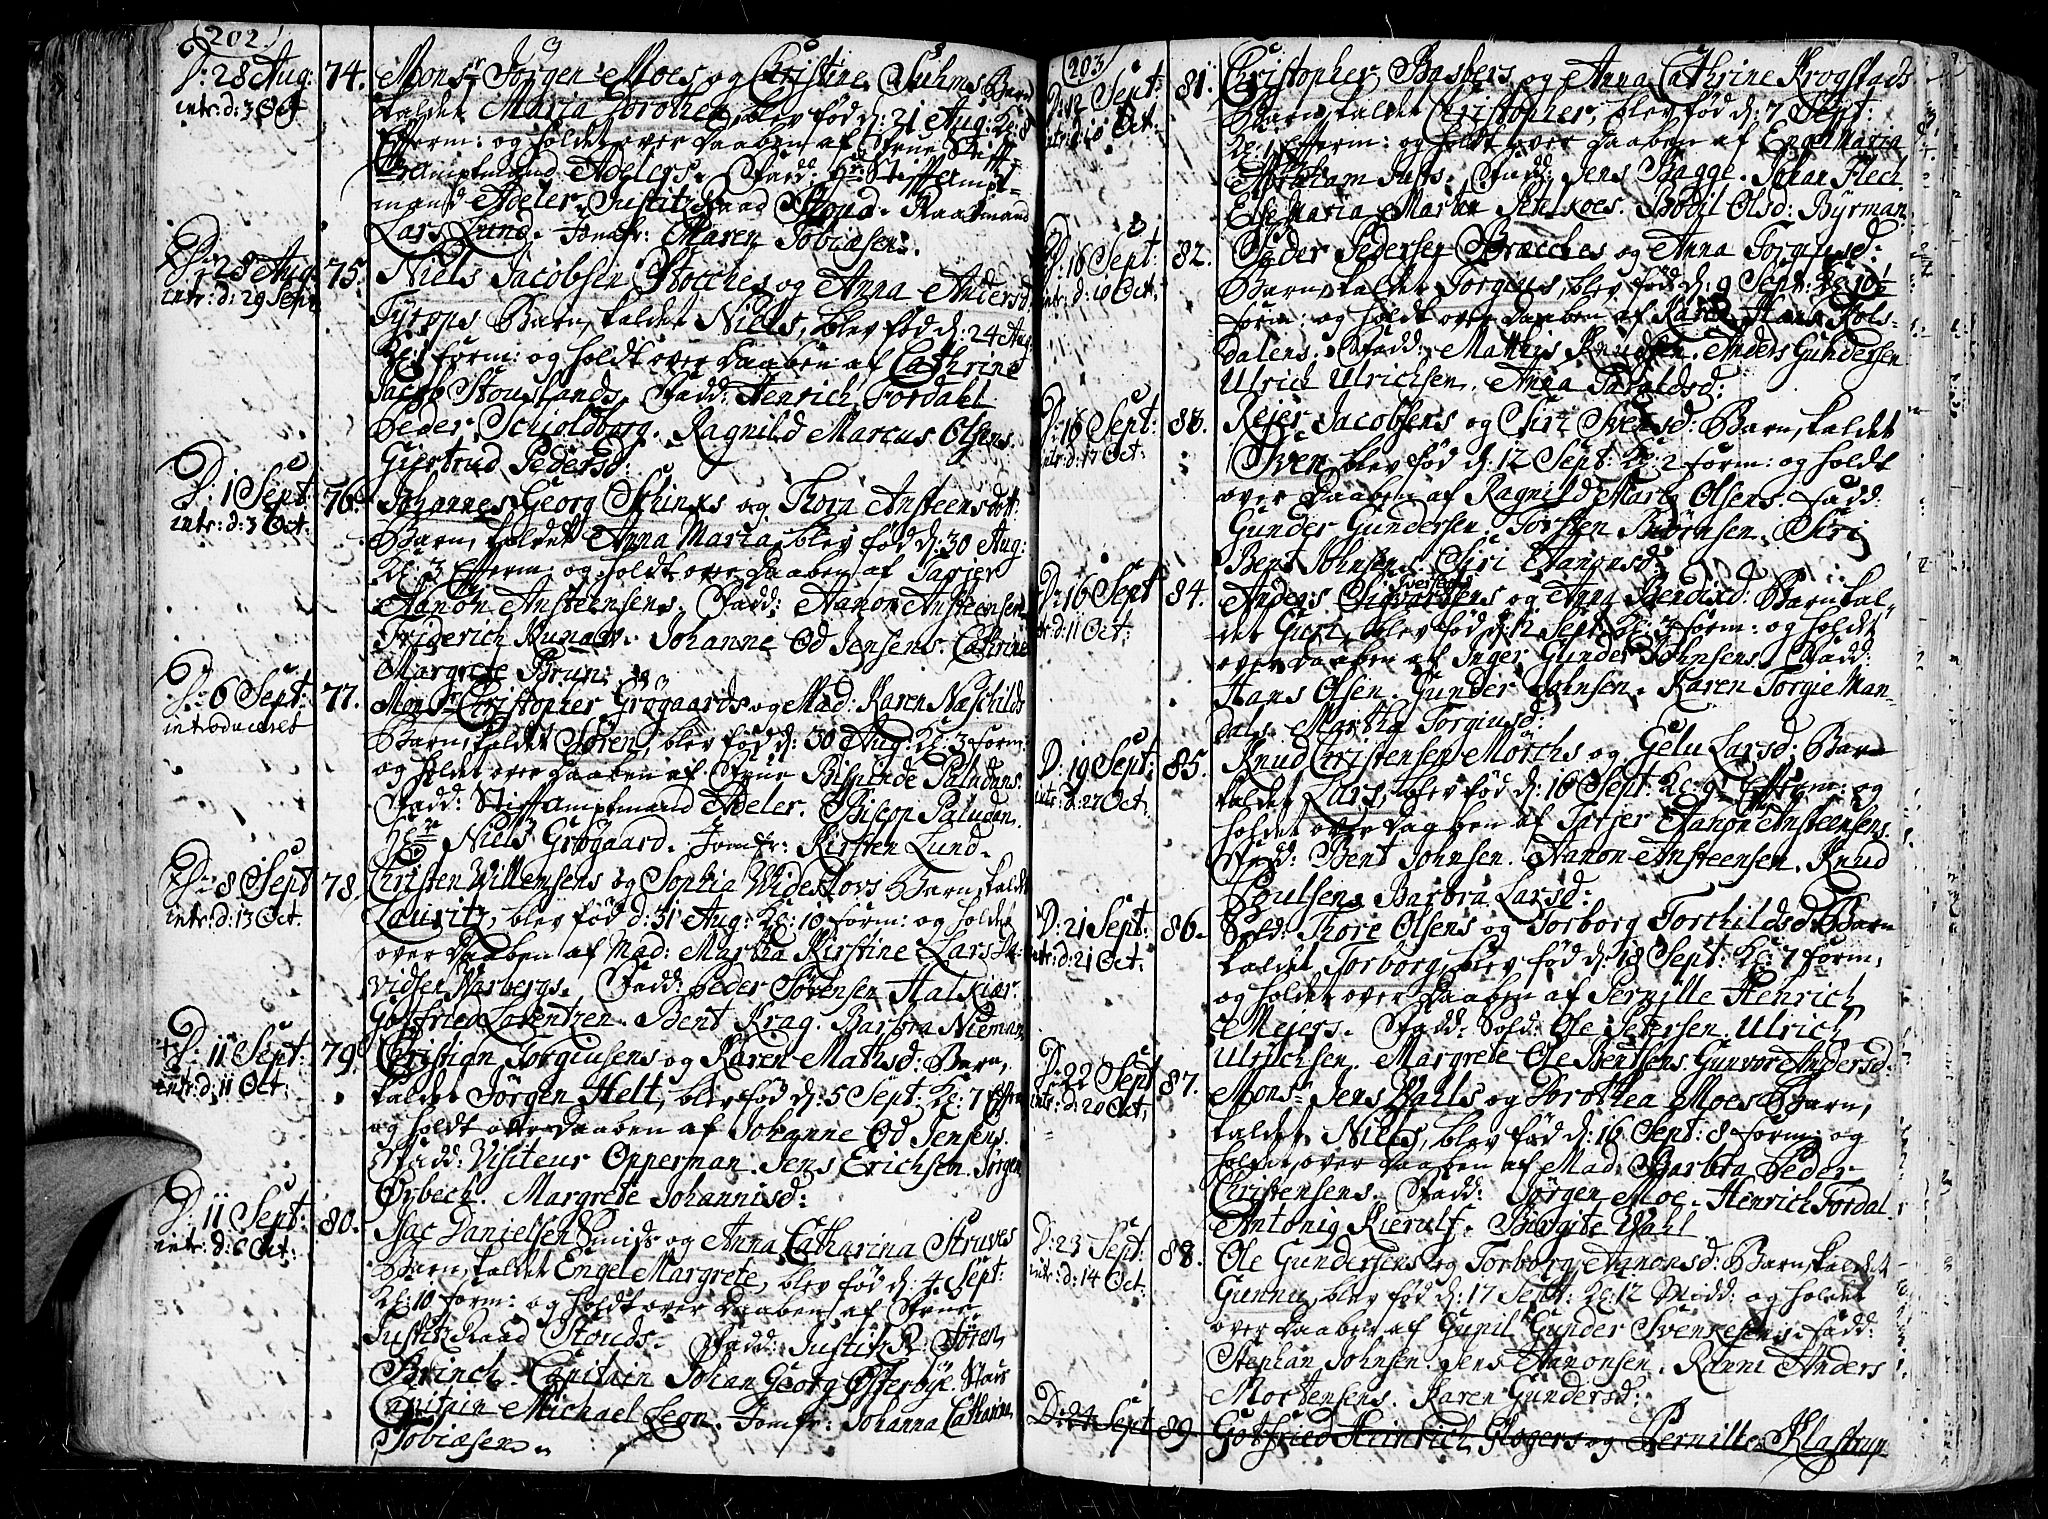 202.
D: 28 Aug:
intr: d: 3 Oct
74. Monsr Jørgen Moes og Christine Suhms Barn
kaldet Maria Dorothea, blev fød d: 21 Aug: Kl: 8
Efterm: og holdt over Daaben af Frue Stift-
Amptmand Adelers. Fadd: Hr Stifftampt-
mand Adeler, Justitz Raad Stoud. Raadmand
Lars Lund. Jomfr: Maren Tobiæsen.
D: 28 Aug:
intr: d: 29 Sept
75. Niels Jacobsen Stocches og Anna Andersd
Tyrops Barn, kaldet Niels, blev fød d: 24 Aug
Kl: form: og holdt over Daaben af Cathrine
Jacob Stouslands. Fadd: Henrich Fordahl
Peder Schioldborg. Ragnild Marcus Olsens
Giertrud Pedersd:
D: 1 Sept
intr: d: 3 Oct:
76. Johannes Georg Schinks og Thora Ansteensdott
Barn, kaldet Anna Maria, blev fød d: 30 Aug:
Kl: 3 Efterm: og holdt over Daaben af Tarjer
Aanon Ansteensens. Fadd: Aanon Ansteensen
Friderich Kunow. Johanne Od Jensens. Cathrine
Margrete Brun.
D: 6 Sept:
introduceret
77. Monsr Christopher Grøgaards og Mad: Karen Naschilds
Barn, kaldet Søren, blev fød d: 30 Aug: Kl: 3 form:
og holdt over Daaben af Frue Bispinde Paludans.
Fadd: Stifftamptmand Adeler. Biscop Paludan.
Niels Grøgaard. Jomfr: Kirsten Lund.
D: 8 Sept
intr: d: 13 Oct.
78. Christen Willemsens og Sophia Wideslovs Barn, kaldet
Lauritz, blev fød d: 31 Aug: Kl: 10 form: og holdet
over Daaben af Mad: Martha Kirstine Lars Da-
vidsen Warbergs. Fadd: Peder Sørensen Halkier.
Gottfried Lorentzen. Bent Krag. Barbra Nieman
D: 11 Sept:
intr: d: 11 Oct:
79. Christian Torgiusens og Karen Mathsd: Barn,
kaldet Jørgen Helt, blev fød d: 5 Sept: Kl: 7 Efter
og holdt over Daaben af Johanne Od Jensens.
Fadd: Visiteur Opperman. Jens Erichsen. Jørgen
Ørbech. Margrete Johannisd:
D: 11 Sept:
intr: d: 6 Oct:
80. Isac Danielsen Smids og Anna Catharina Struves
Barn, kaldet Engel Margrete, blev fød d: 4 Sept:
Kl: 10 form: og holdt over Daaben af Frue
Justitz Raad Stouds. Fadd: Justitz R: Søren
Brinch. Capitain Johan Georg Østerøye. Stads
Capitain Michael Legn. Jomfr: Johanna Catharina
Tobiæsen.
203
D: 12 Sept:
intr: d: 10 Oct:
81. Christopher Basbergs og Anna Cathrine Krogstads
Barn, kaldet Christopher, blev fød d: 7 Sept:
Kl: 1 Efterm: og holdt over Daaben af Engel Maria
Abraham Juls. Fadd: Jens Bagge. Johan Flech
Else Maria Marten Pehlkoes. Bodil Olsd: Byrman
D: 16 Sept:
intr: d: 10 Oct:
82. Peder Pedersen Bracches og Anna Torgiusd:
Barn, kaldet Torgius, blev fød d: 9 Sept: Kl: 10½
form: og holdt over Daaben af Karen Hans Kols-
dalens. Fadd: Mathis Knudsen. Anders Gundersen
Ulrich Ulrichsen. Anna
D: 16 Sept:
intr: d: 17 Oct:
83. Rejer Jacobsens og Siri Svensd: Barn, kaldet
Sven, blev fød d: 12 Sept: Kl: 2 form: og holdt
over Daaben af Ragnild Marcus Olsens. Fadd:
Gunder Gundersen. Torsten Biørnsen. Siri
Bent Johnsens. Siri Aanonsd:
D: 16 Sept
intr: d: 11 Oct:
84. Anders Siguardsens Iversens og Anna Bendixd: Barn kal-
det Guri, blev fød d: 12 Sept Kl: 3 form: og holdet
over Daaben af Inger Gunder Johnsens. Fadd:
Hans Olsen. Gunder Johnsen. Karen Torgie Man-
dals. Martha Torgiusd:
D: 19 Sept:
intr: d: 27 Oct.
85. Knud Christensen Mørchs og Gelu Larsd: Barn
kaldet Lars, blev fød d: 16 Sept: Kl: 9 Efterm: og
holdet over Daaben af Tarjer Aanon Ansteensens.
Fadd: Bent Johnsen. Aanon Ansteensen. Knud
Poulsen. Barbra Larsd:
D: 21 Sept:
intr: d: 21 Oct:
86. Sold: Thore Olsens og Torborg Torchildsd: Barn
kaldet Torborg, blev fød d: 18 Sept: Kl: 7 form,
og holdet over Daaben af Pernille Henrich
Meiers. Fadd: Sold: Ole Petersen. Ulrich
Ulrichsen. Margrete Ole Bentsens. Gunvor Andersd.
D: 22 Sept
intr: d: 20 Oct.
87. Monsr Jens Wahls og Dorothea Moes Barn,
kaldet Niels, blev fød d: 16 Sept: 8 form: og
holdet over Daaben af Mad: Barbra Peder
Christensens. Fadd: Jørgen Moe. Henrich Fordal.
Antonig Kierulf. Birgite Wahl.
D: 23 Sept:
intr: d: 14 Oct:
88. Ole Gundersens og Torborg Aanonsd: Barn, kaldet
Gunnu, blev fød d: 17 Sept: Kl: 12 Midd: og holdet
over Daaben af Gunil Gunder Svenkesens. Fadd:
Stephan Johnsen. Jens Aanonsen. Ranni Anders
Mortensens. Karen Gundersd:
D: 24 Sept
89. Gotfried Heinrich Glogers og Pernille Klastrup